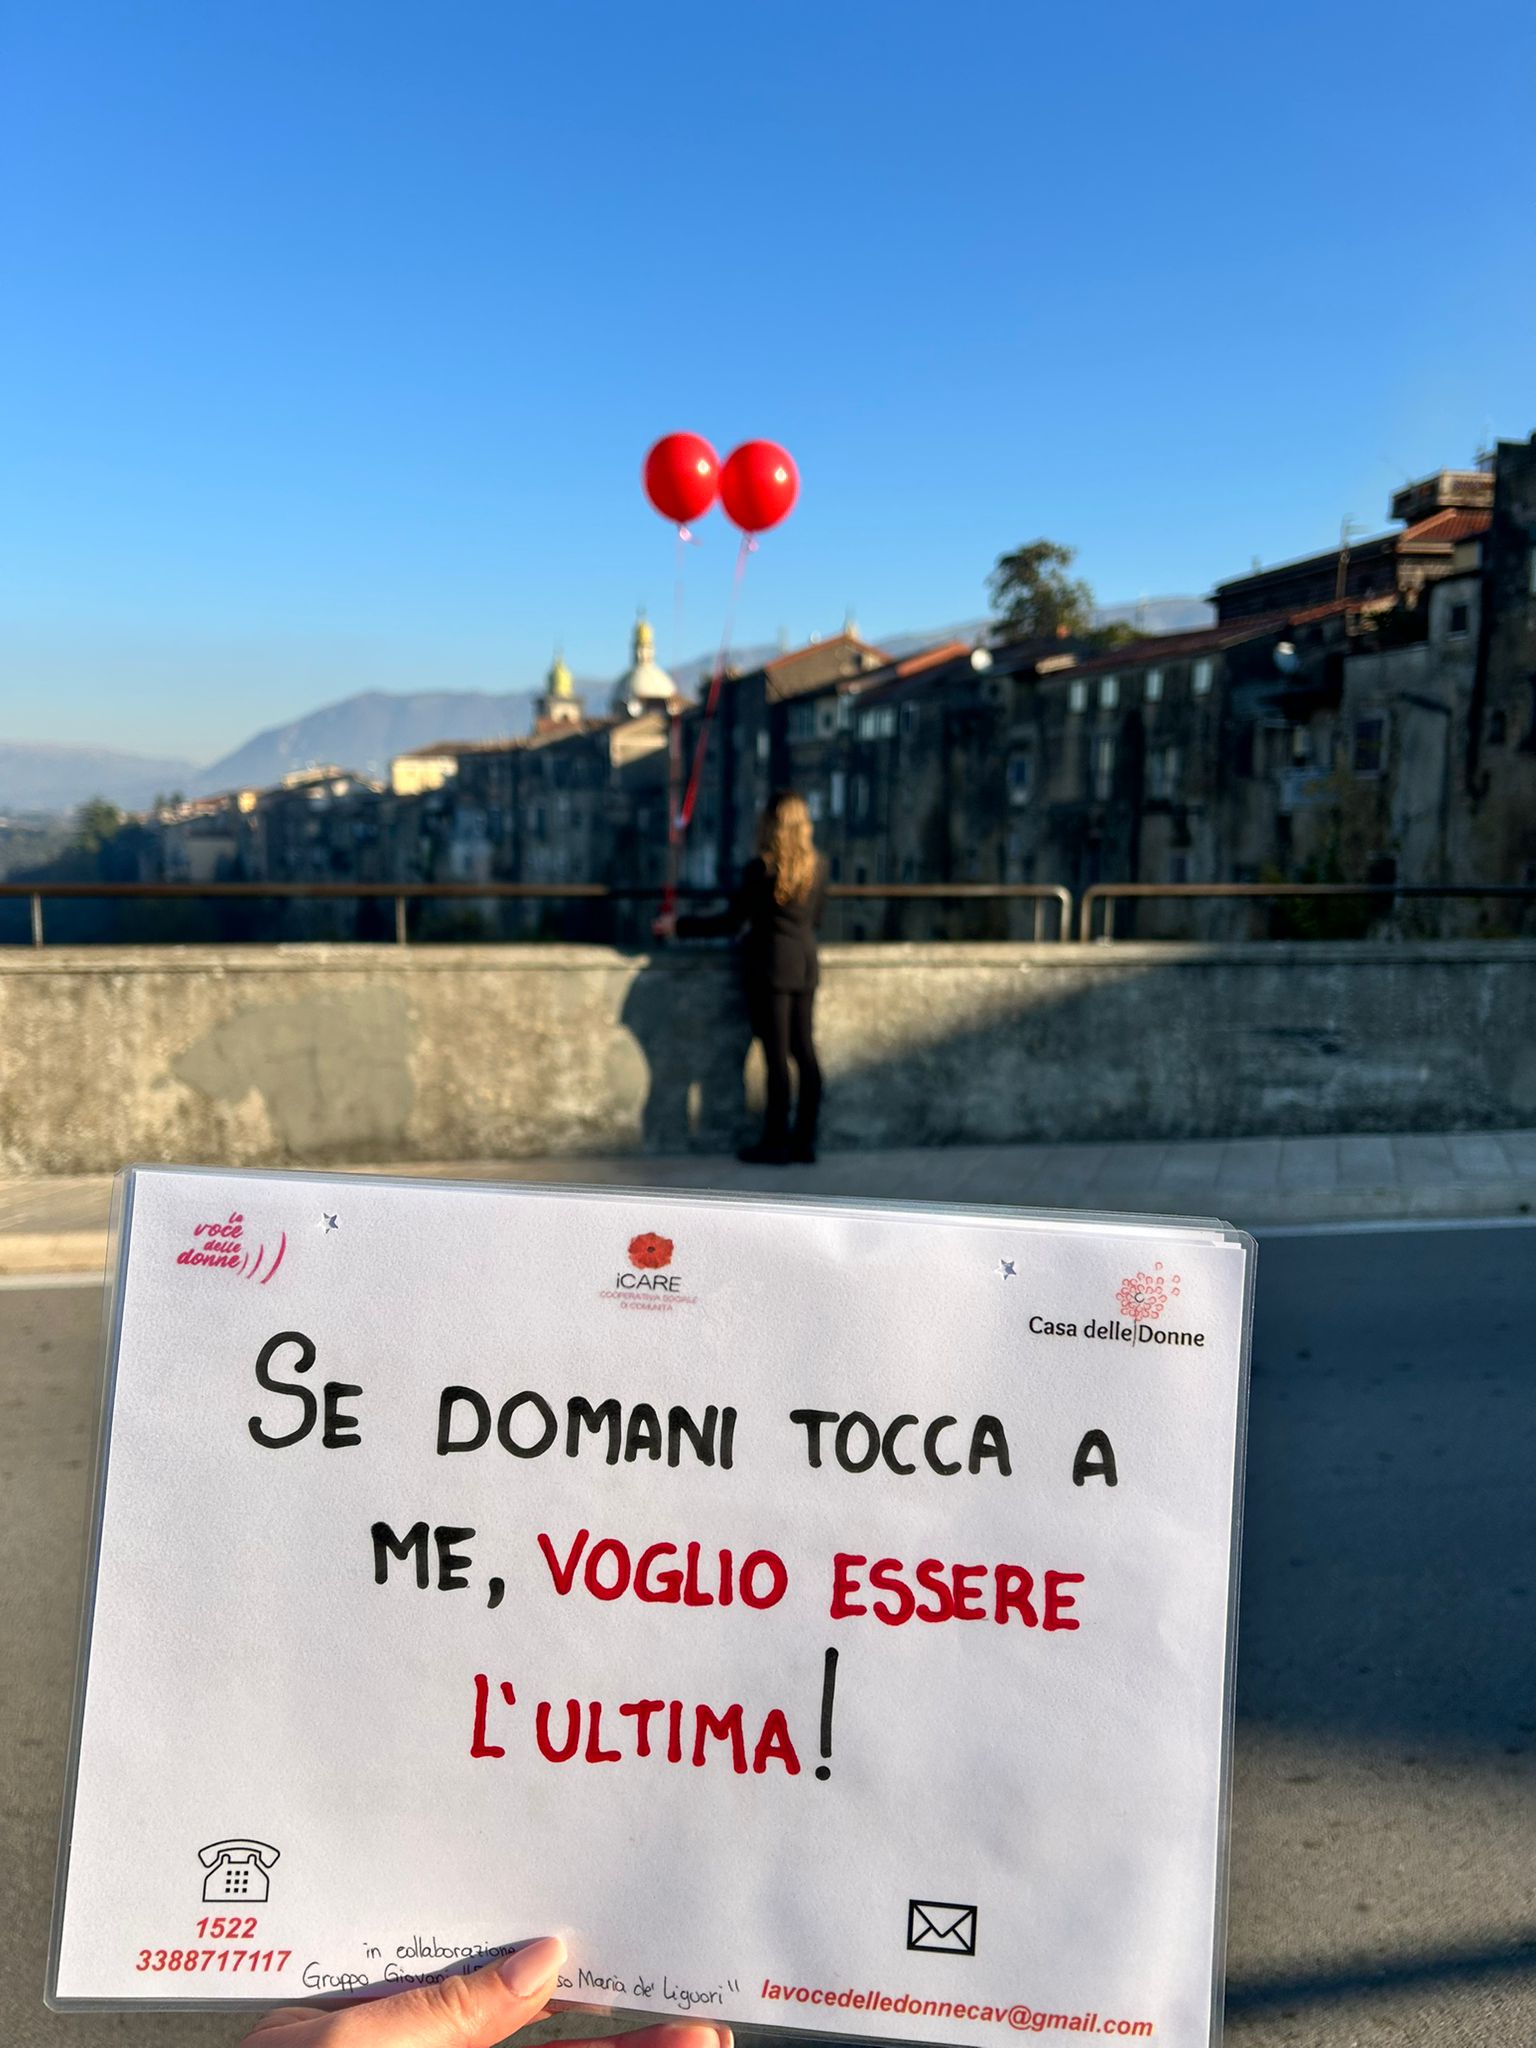 la
voce
delle
donne)))
iCARE
COOPERATIVA SOCIALE
DI COMUNITÀ
Casa delle Donne
SE DOMANI TOCCA A
ME, VOGLIO ESSERE
L'ULTIMA!
1522
3388717117
in collaborazione
Gruppo Giovani Maria de' Liguori"
lavocedelledonnecav@gmail.com